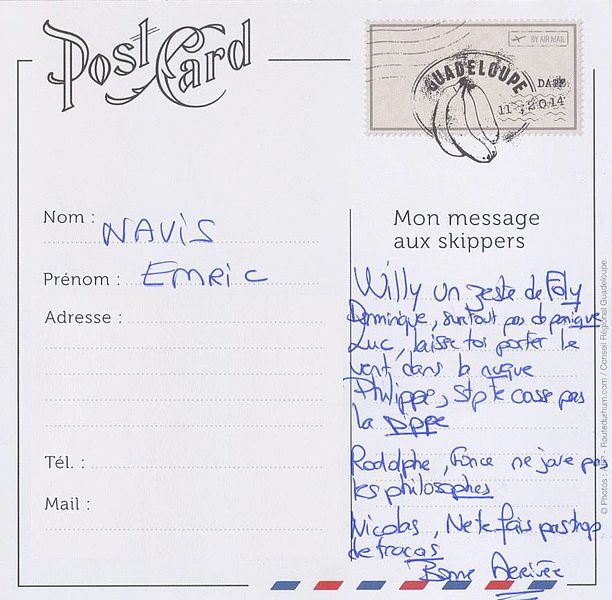 Post Card
BY AIR MAIL
GUADELOUPE
DATE
11 2014
Nom : NAVIS
Prénom : EMRIC
Adresse :
Tél. :
Mail :
Mon message
aux skippers
Willy un zeste de Foly
Dominique, surtout pas de panique
Luc, laisse toi porter le
vent dans la nuque
Philippe, stp te casse pas
la pippe
Rodolphe, Fonce ne joue pas
les philosophes
Nicolas, Ne te fais pas trop
de tracas
Bonne Arrivée
Routedurhum.com / Conseil Régional Guadeloupe.
© Photos :